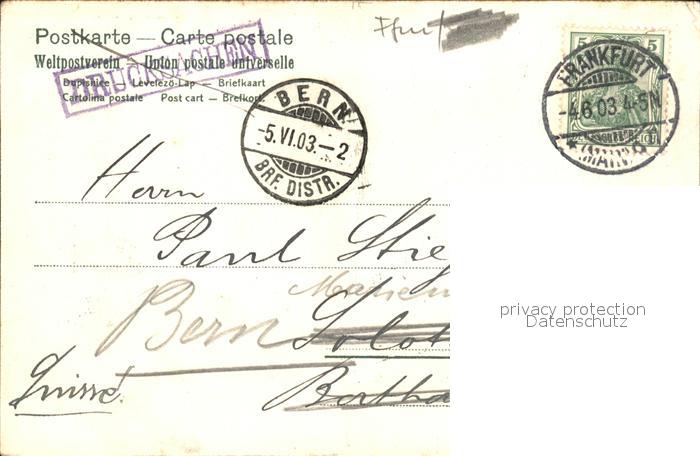 Postkarte — Carte postale
Weltpostverein — Union postale universelle
Dopisnice — Levelező-Lap — Briefkaart
Cartolina postale Post cart — Brefkort
DRUCKSACHEN
Ffurt
5 5
FRANKFURT
-4.6.03.4-5N
(MAIN)
BERN
-5.VI.03.-2
BRF. DISTR.
Herrn
Paul Stie
Marien
Bern Solot
Suisse. Bertha
privacy protection
Datenschutz